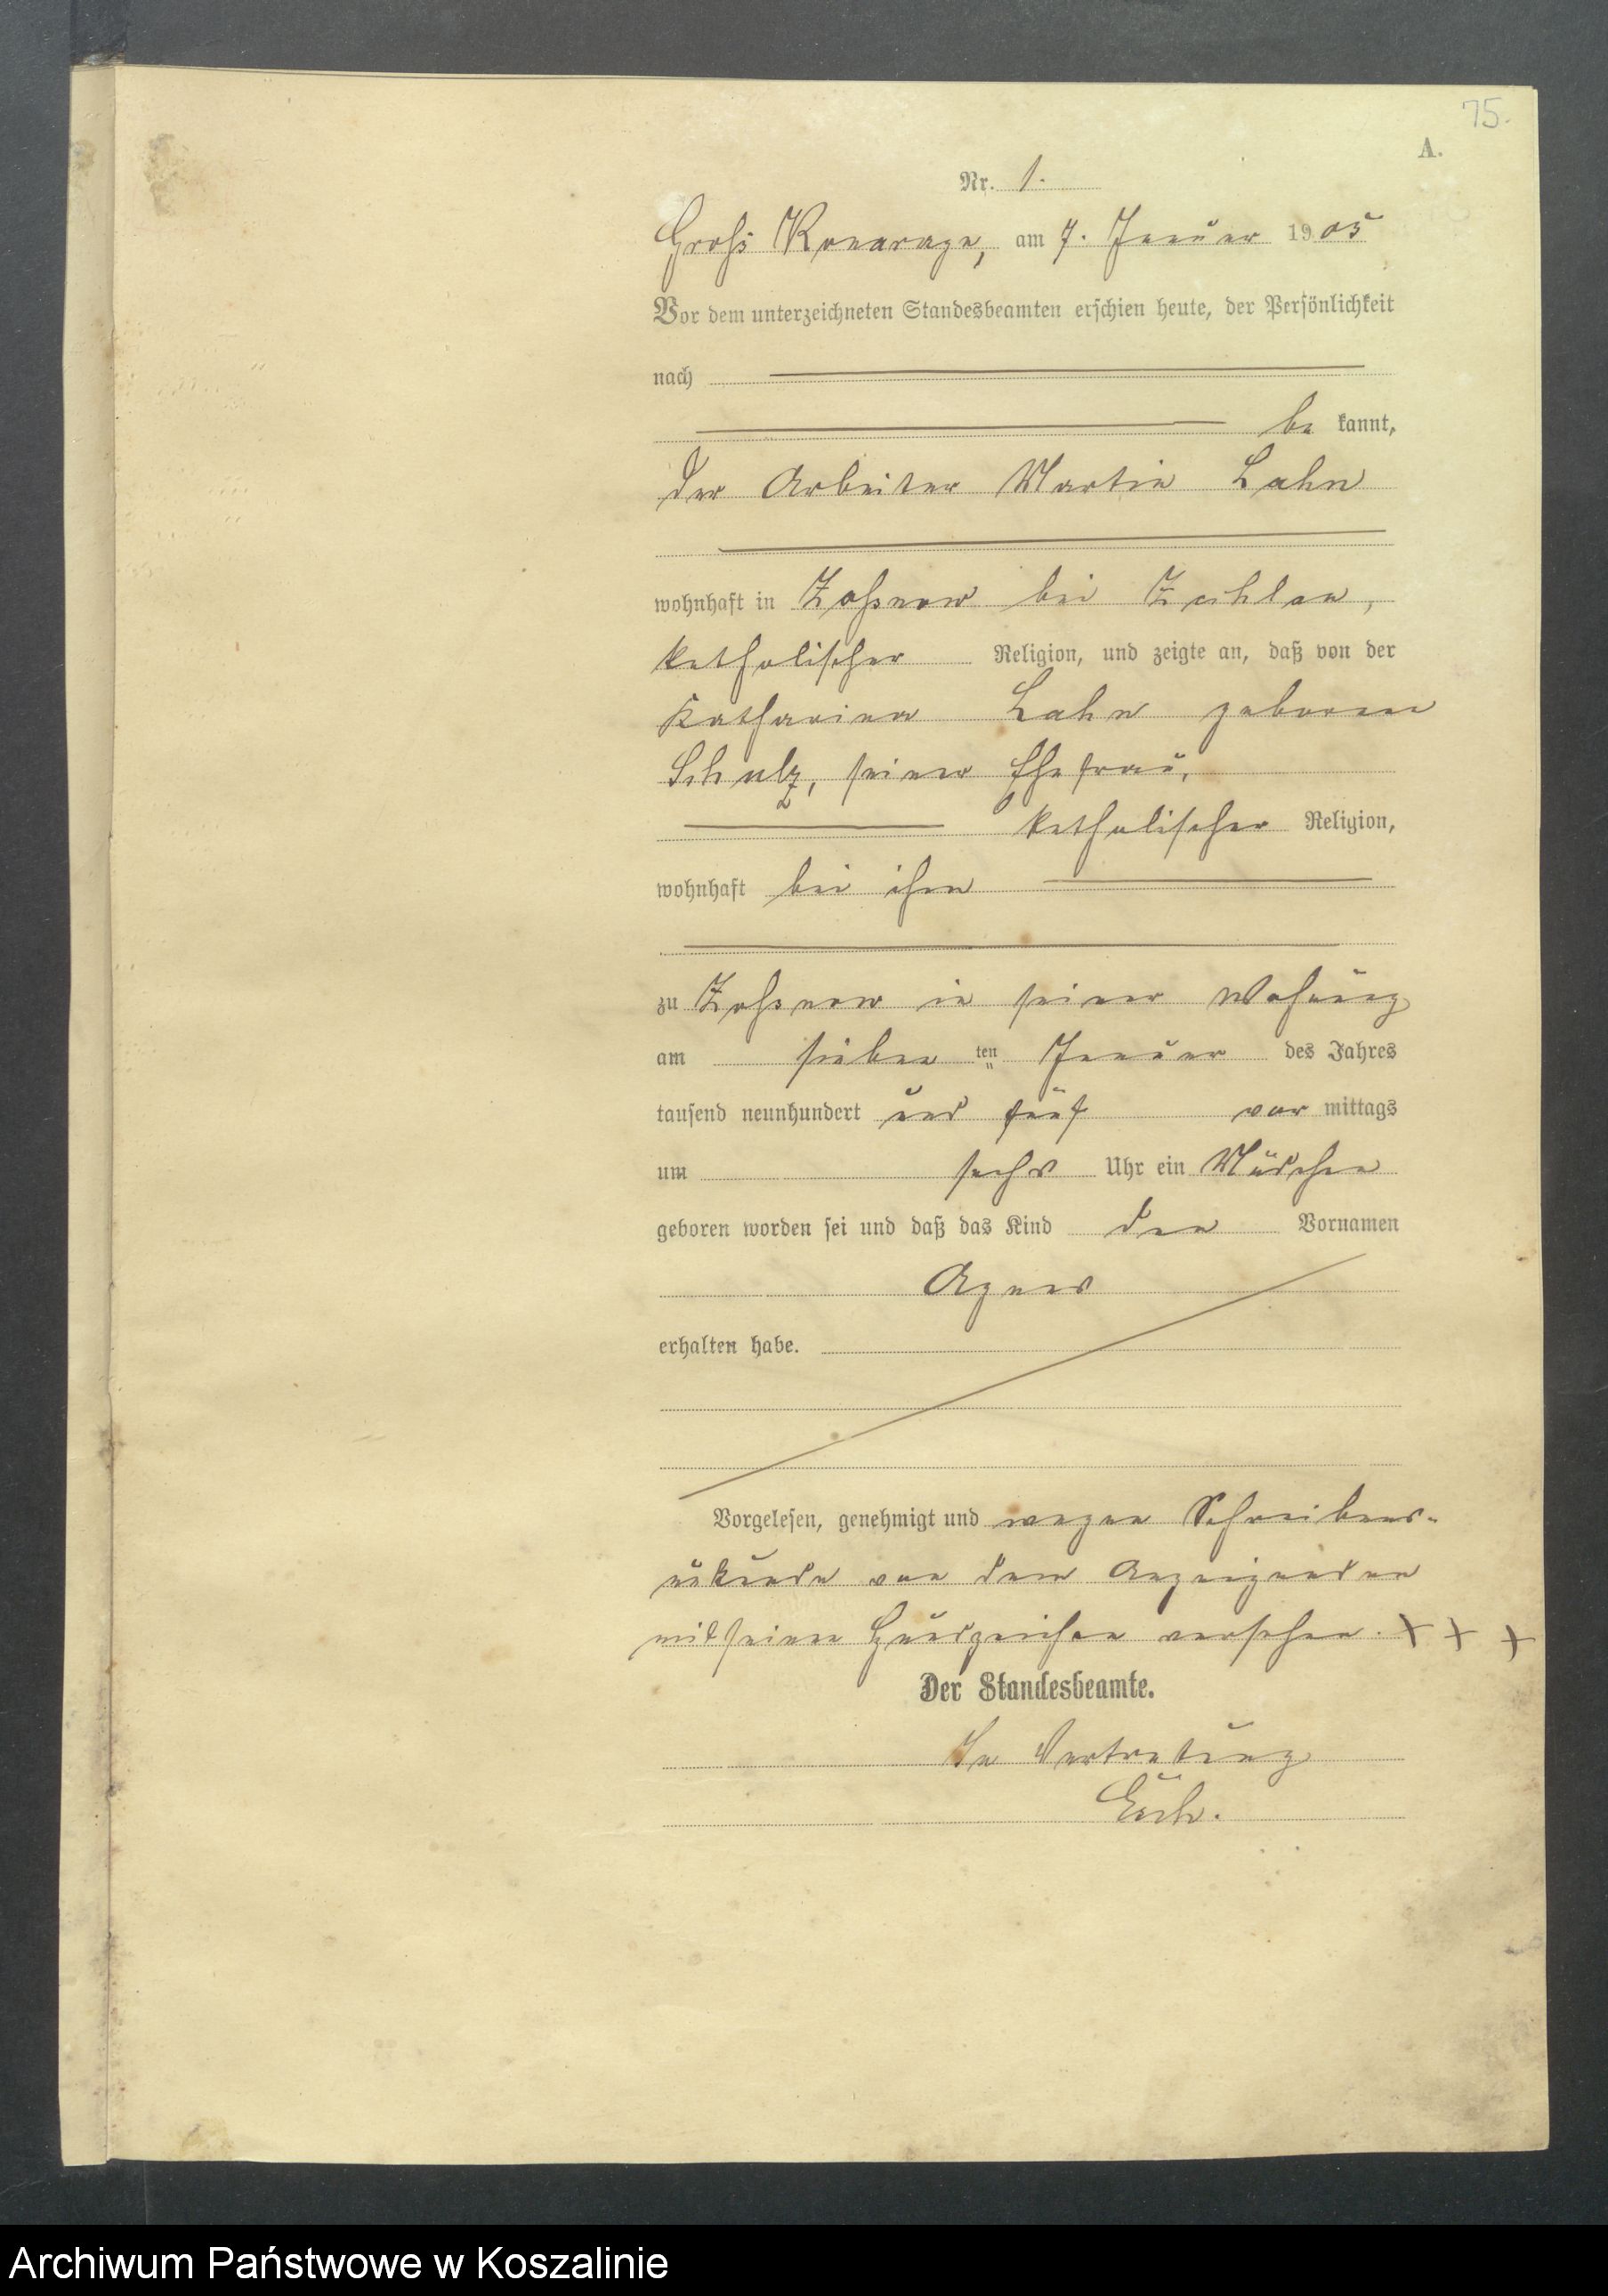 75.
A.
Nr. 1.
Groß Konarzyn, am 7. Januar 1905
Vor dem unterzeichneten Standesbeamten erschien heute, der Persönlichkeit
nach
be kannt,
der Arbeiter Martin Lahn
wohnhaft in bei Zechlau,
katholischer Religion, und zeigte an, daß von der
Katharina Lahn geborene
Schulz, seiner Ehefrau,
katholischer Religion,
wohnhaft bei ihm
zu in seiner Wohnung
am sieben ten Januar des Jahres
tausend neunhundert und fünf vor mittags
um sechs Uhr ein Mädchen
geboren worden sei und daß das Kind den Vornamen
Agnes
erhalten habe.
Vorgelesen, genehmigt und wegen Schreibens-
unkunde von dem Anzeigenden
mit seinem Handzeichen versehen. + + +
Der Standesbeamte.
In Vertretung
Archiwum Państwowe w Koszalinie